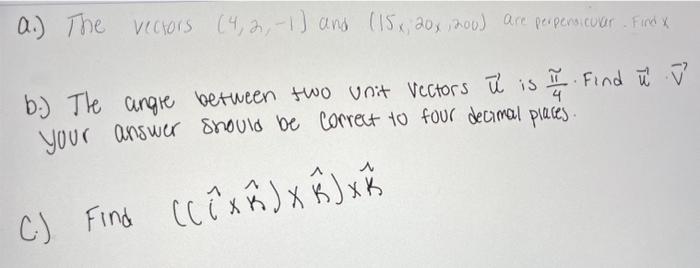 a.) The vectors (4, 2, -1) and (15x, 20x, 200) are perpendicular. Find x
b.) The angle between two unit vectors u⃗ is π/4. Find u⃗ · v⃗
your answer should be correct to four decimal places.
C.) Find ((î x k̂) x k̂) x k̂